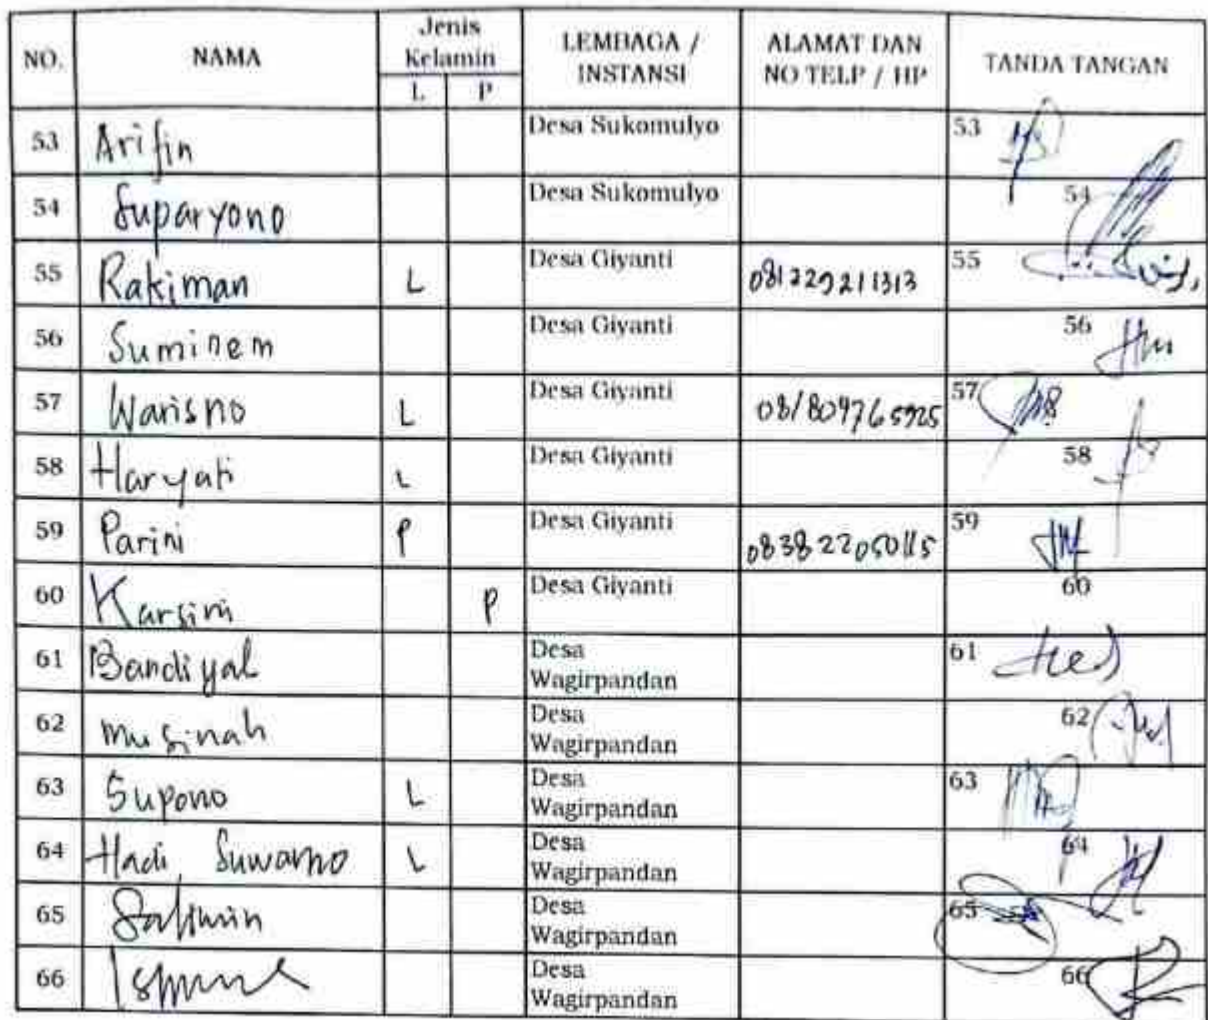 NO. NAMA Jenis Kelamin LEMBAGA / INSTANSI ALAMAT DAN NO TELP / HP TANDA TANGAN
L P
53 Arifin Desa Sukomulyo 53
54 Suparyono Desa Sukomulyo 54
55 Rakiman L Desa Giyanti 081229211313 55
56 Suminem Desa Giyanti 56
57 Warisno L Desa Giyanti 57
58 Haryati L Desa Giyanti 58
59 Parini P Desa Giyanti 59
60 Karsini P Desa Giyanti 60
61 Bandiyal Desa Wagirpandan 61
62 Musinah Desa Wagirpandan 62
63 Supono L Desa Wagirpandan 63
64 Hadi Suwarno L Desa Wagirpandan 64
65 Desa Wagirpandan 65
66 Desa Wagirpandan 66